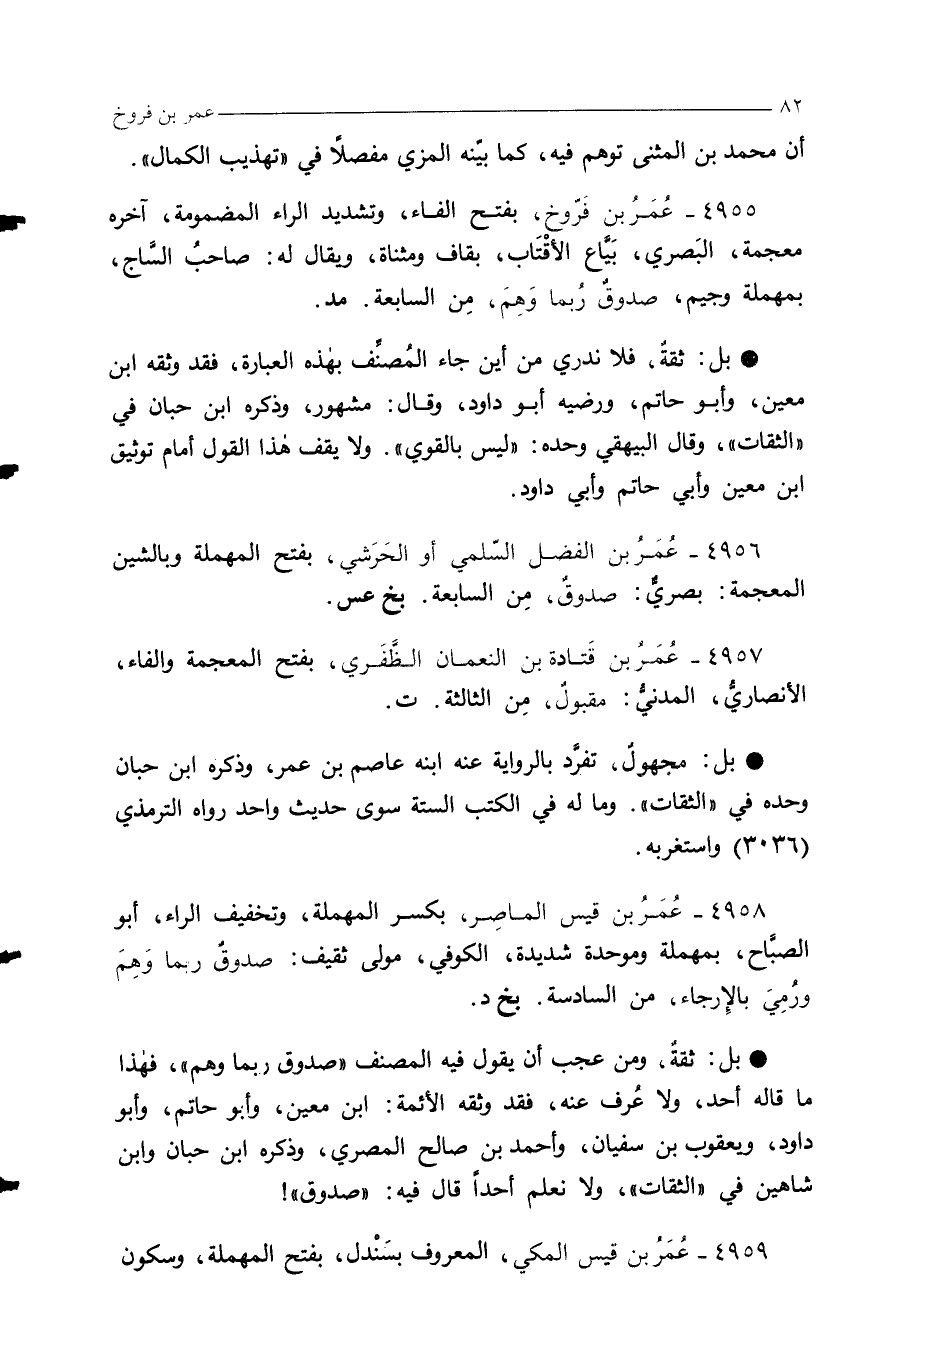 ٨٢ ـــ عمر بن فروخ
أن محمد بن المثنى توهم فيه، كما بيّنه المزي مفصلاً في «تهذيب الكمال».
٤٩٥٥ ـ عُمَرُ بن فَرّوخ، بفتح الفاء، وتشديد الراء المضمومة، آخره
معجمة، البَصري، بَيَّاع الأقْتَاب، بقاف ومثناة، ويقال له: صاحبُ السَّاج،
بمهملة وجيم، صدوقٌ رُبما وَهِمَ، مِن السابعة. مد.
● بل: ثقةٌ، فلا ندري من أين جاء المُصنِّف بهٰذه العبارة، فقد وثقه ابن
معين، وأبو حاتم، ورضيه أبو داود، وقال: مشهور، وذكره ابن حبان في
«الثقات»، وقال البيهقي وحده: «ليس بالقوي». ولا يقف هٰذا القول أمام توثيق
ابن معين وأبي حاتم وأبي داود.
٤٩٥٦ ـ عُمَرُ بن الفضل السّلمي أو الحَرَشي، بفتح المهملة وبالشين
المعجمة: بصريٌّ: صدوقٌ، مِن السابعة. بخ عس.
٤٩٥٧ ـ عُمَرُ بن قَتادة بن النعمان الظَّفَري، بفتح المعجمة والفاء،
الأنصاريُّ، المدنيُّ: مقبولٌ، مِن الثالثة. ت.
● بل: مجهولٌ، تفرَّد بالرواية عنه ابنه عاصم بن عمر، وذكره ابن حبان
وحده في «الثقات». وما له في الكتب الستة سوى حديث واحد رواه الترمذي
(٣٠٣٦) واستغربه.
٤٩٥٨ ـ عُمَرُ بن قيس الماصِر، بكسر المهملة، وتخفيف الراء، أبو
الصبَّاح، بمهملة وموحدة شديدة، الكوفي، مولى ثقيف: صدوقٌ ربما وَهِمَ
ورُمِيَ بالإرجاء، من السادسة. بخ د.
● بل: ثقةٌ، ومن عجب أن يقول فيه المصنف «صدوق ربما وهم»، فهٰذا
ما قاله أحد، ولا عُرف عنه، فقد وثقه الأئمة: ابن معين، وأبو حاتم، وأبو
داود، ويعقوب بن سفيان، وأحمد بن صالح المصري، وذكره ابن حبان وابن
شاهين في «الثقات»، ولا نعلم أحداً قال فيه: «صدوق»!
٤٩٥٩ ـ عُمَرُ بن قيس المكي، المعروف بسَنْدل، بفتح المهملة، وسكون